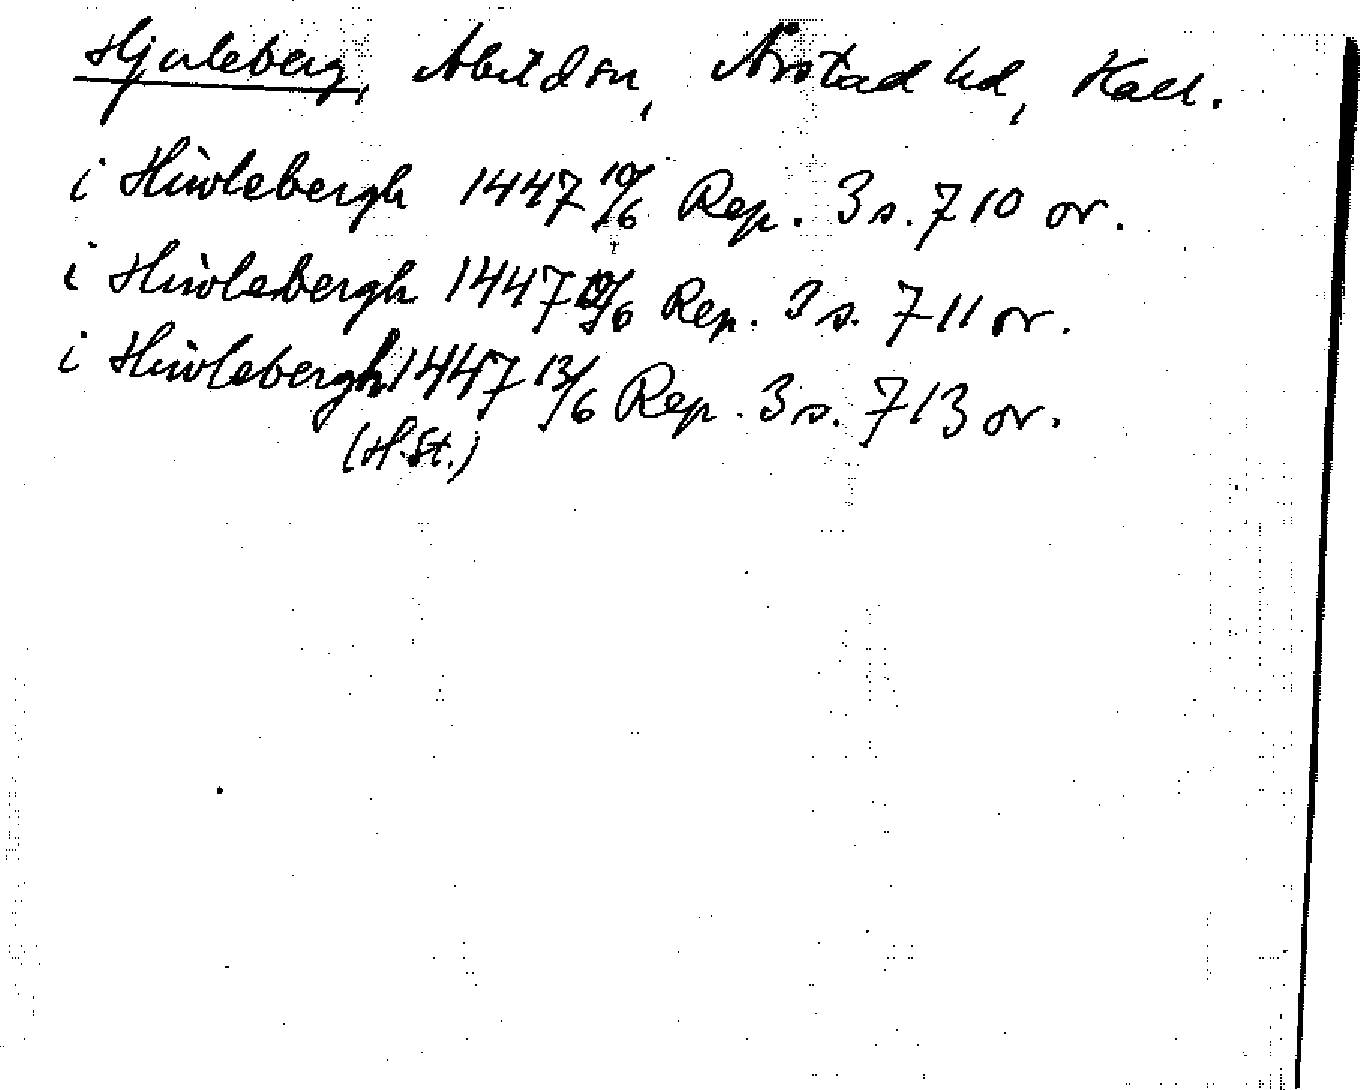 Hjuleberg, Abild sn, Årstad hd, Hall.
i Hiwlebergh 1447 10/6 Rep. 3 s. 710 or.
i Hiwlebergh 1447 10/6 Rep. 3 s. 711 or.
i Hiwlebergh 1447 13/6 Rep. 3 s. 713 or.
(H.St.)